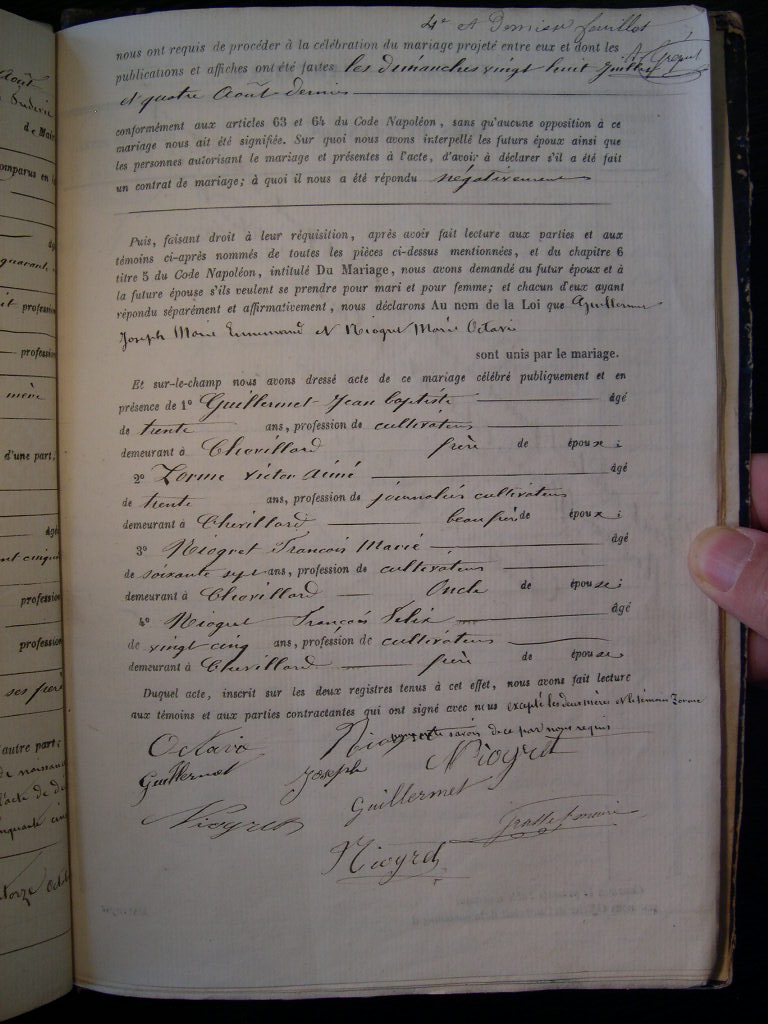 4e et Dernier feuillet
nous ont requis de procéder à la célébration du mariage projeté entre eux et dont les
publications et affiches ont été faites les dimanches vingt huit Juillet
et quatre Août dernier
conformément aux articles 63 et 64 du Code Napoléon, sans qu'aucune opposition à ce
mariage nous ait été signifiée. Sur quoi nous avons interpellé les futurs époux ainsi que
les personnes autorisant le mariage et présentes à l'acte, d'avoir à déclarer s'il a été fait
un contrat de mariage; à quoi il nous a été répondu négativement
Puis, faisant droit à leur réquisition, après avoir fait lecture aux parties et aux
témoins ci-après nommés de toutes les pièces ci-dessus mentionnées, et du chapitre 6
titre 5 du Code Napoléon, intitulé Du Mariage, nous avons demandé au futur époux et à
la future épouse s'ils veulent se prendre pour mari et pour femme; et chacun d'eux ayant
répondu séparément et affirmativement, nous déclarons Au nom de la Loi que Guillermet
Joseph Marie Emmanuel et Niogret Marie Octavie
sont unis par le mariage.
Et sur-le-champ nous avons dressé acte de ce mariage célébré publiquement et en
présence de 1o Guillermet Jean Baptiste âgé
de trente ans, profession de cultivateur
demeurant à Chevillard frère de époux;
2o Lorme Victor Aimé âgé
de trente ans, profession de journalier cultivateur
demeurant à Chevillard beau frère de époux;
3o Niogret François Marie âgé
de soixante sept ans, profession de cultivateur
demeurant à Chevillard Oncle de épouse;
4o Niogret François Felix âgé
de vingt cinq ans, profession de cultivateur
demeurant à Chevillard frère de épouse
Duquel acte, inscrit sur les deux registres tenus à cet effet, nous avons fait lecture
aux témoins et aux parties contractantes qui ont signé avec nous excepté les deux mères et le témoin Lorme
savoir de ce par nous requis
Octavie Niogret
Guillermet Joseph Niogret
Niogret Guillermet
Niogret